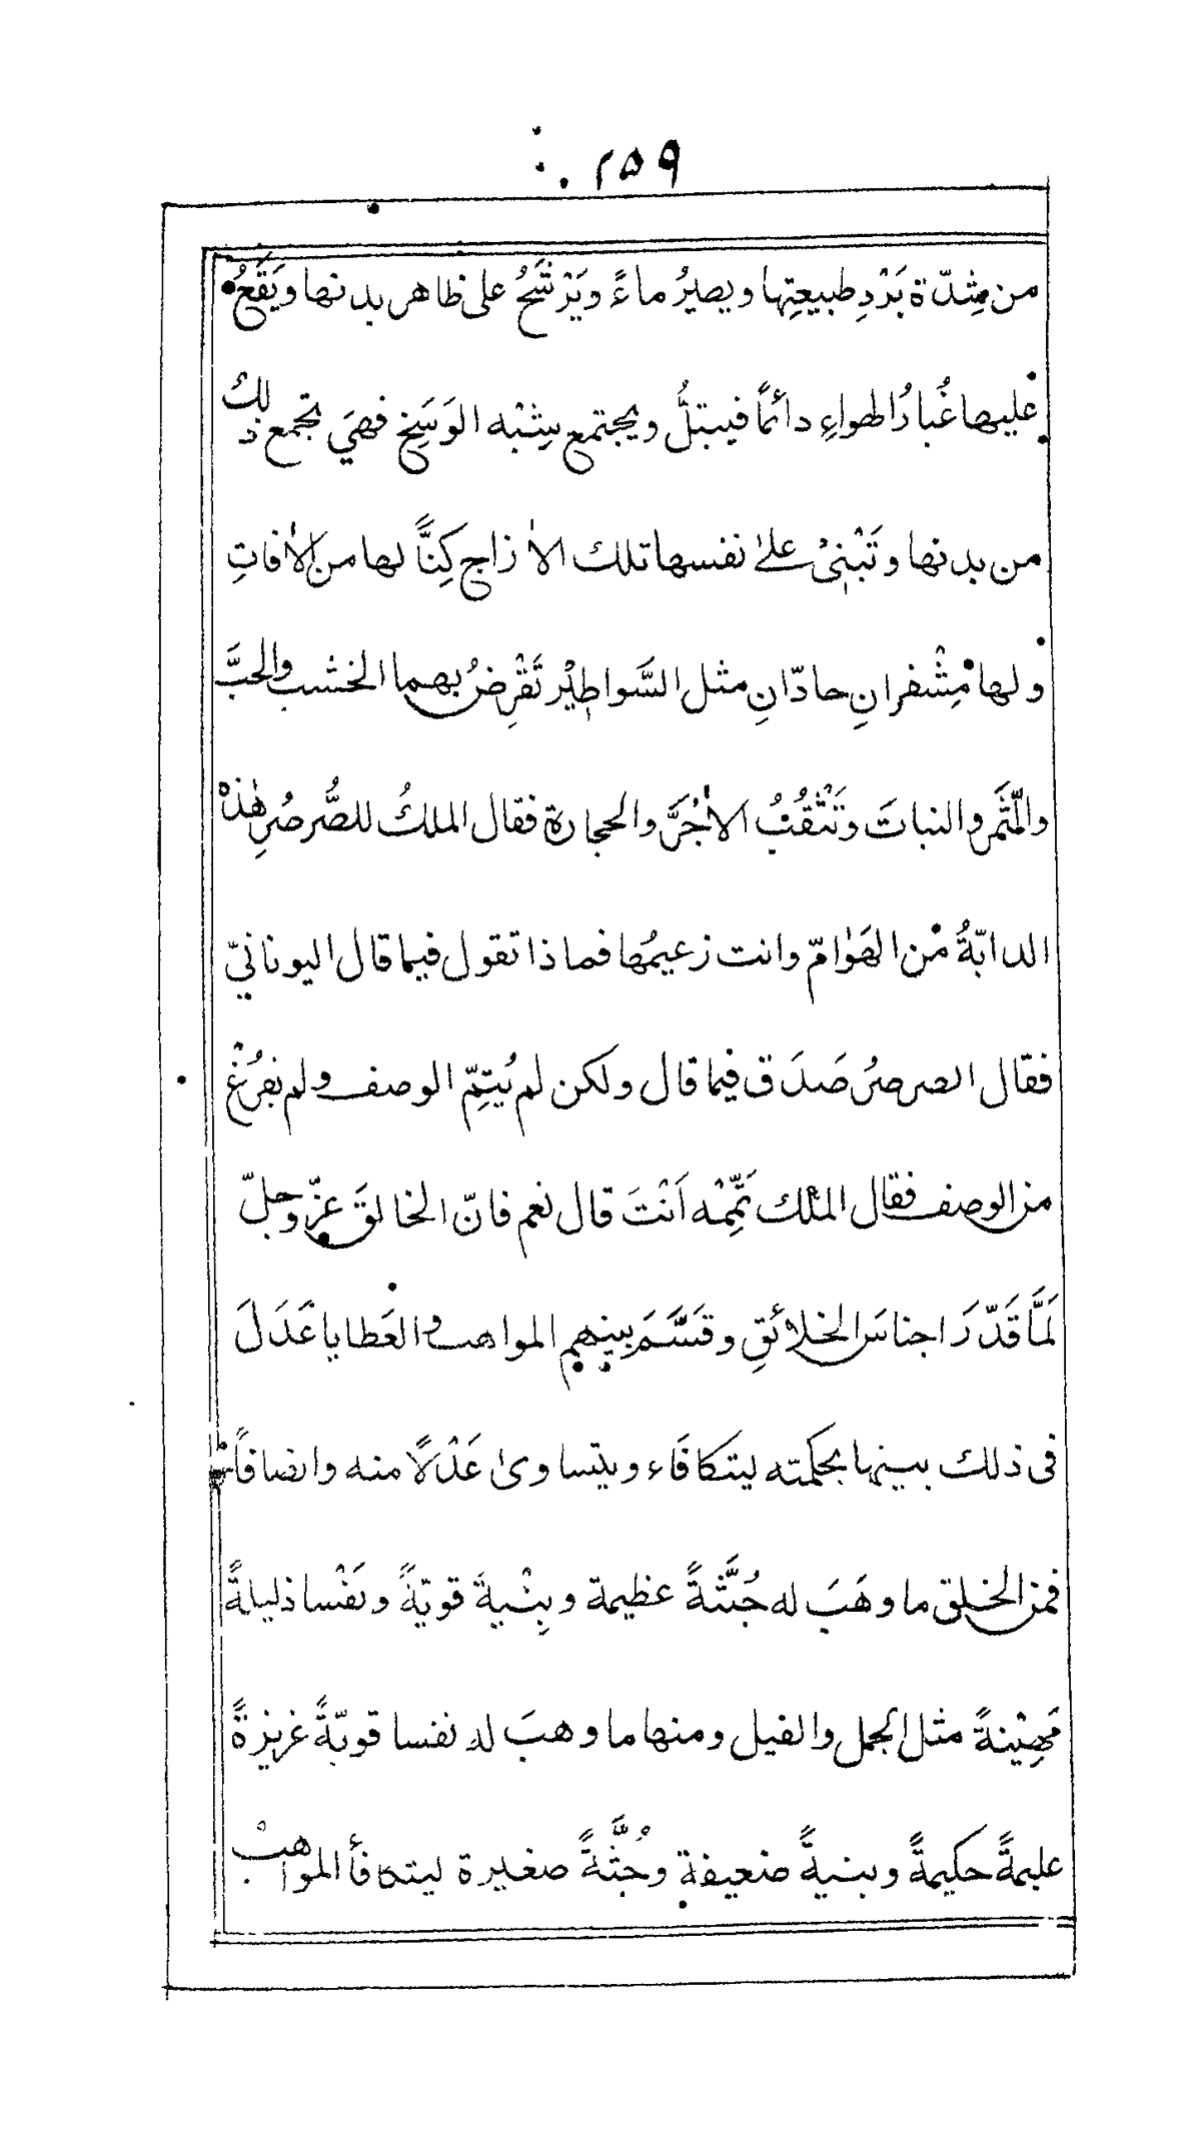 ٢٥٩
من شِدّة بَرْدِ طبيعتِها ويصيرُ ماءً ويَرْشَحُ على ظاهر بدنها ويَقَعُ
عليها غُبارُ الهواءِ دائمًا فيبتلُّ ويجتمع شِبْه الوَسَخِ فهيَ تجمع ذلِكَ
من بدنها وتَبْنِىْ علىٰ نفسها تلك الاٰزاج كِنًّا لها من الاٰفاتِ
ولها مِشْفرانِ حادّانِ مثل السَّواطِيْر تَقْرِضُ بهما الخشب والحَبَّ
والثَّمر والنباتَ وتَثْقُبُ الاٰجُرَّ والحجارة فقال الملكُ للصُّرصُرِ هٰذه
الدابّةُ مْن الهَوٰامّ وانت زعيمُها فماذا تقول فيما قال اليونانيّ
فقال الصرصرُ صَدَق فيما قال ولكن لم يُتِمّ الوصف ولم يفرُغْ
من الوصف فقال الملك تَمِّمْه اَنْتَ قال نعم فانّ الخالقَ عزّ وجلّ
لَمَّا قَدّرَ اجناسَ الخلائقِ وقَسَّمَ بينهم المواهب والعَطايا عَدَلَ
فى ذلك بينها بحكمته ليتكافَاء ويتساوىٰ عَدْلًا منه وانصافًا
فمن الخلق ما وهَبَ له جُثَّةً عظيمة وبِنْيةً قويّةً ونَفْسا ذليلةً
مَهِيْنةً مثل الجمل والفيل ومنها ما وهبَ له نفسا قويّةً عزيزةً
عليمةً حكيمةً وبنيةً ضعيفة وجُثَّةً صغيرة ليتكافأ المواهبْ